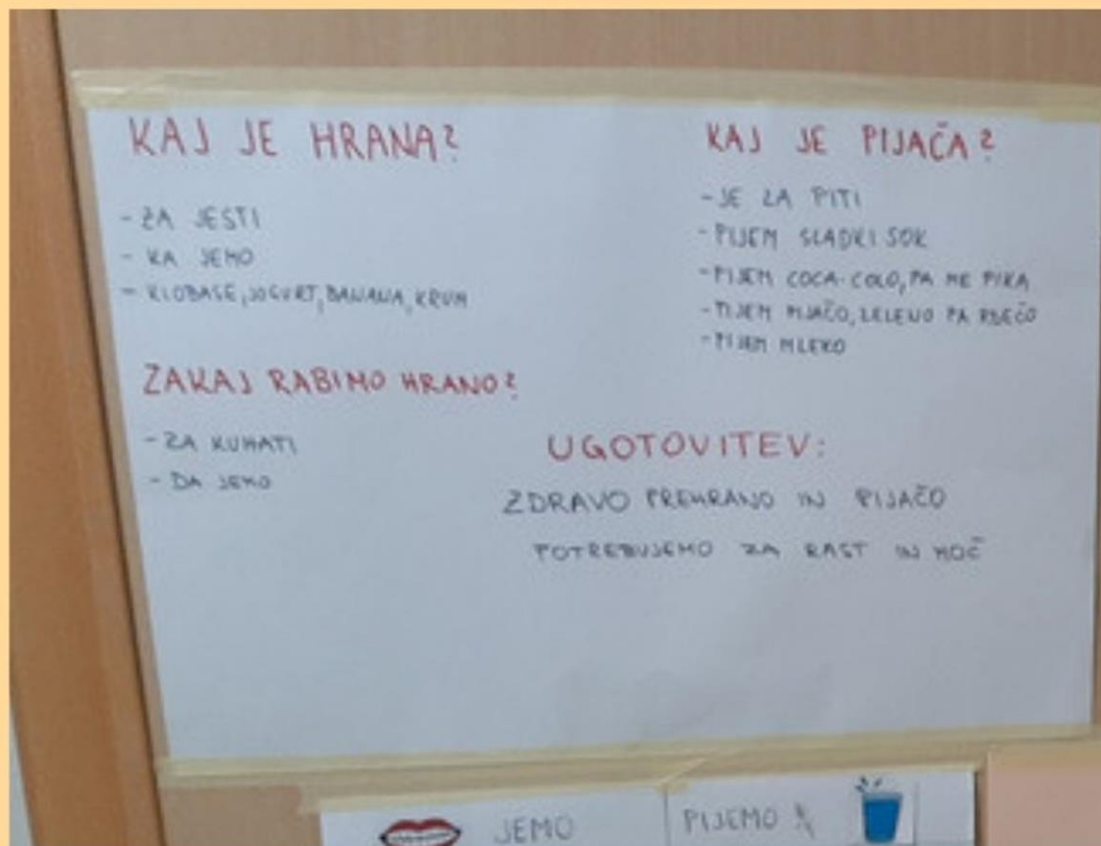 KAJ JE HRANA?
- ZA JESTI
- KA JEMO
- KLOBASE, JOGURT, BANANA, KRUH
ZAKAJ RABIMO HRANO?
- ZA KUHATI
- DA JEMO
KAJ JE PIJAČA?
- JE ZA PITI
- PIJEM SLADKI SOK
- PIJEM COCA-COLO, PA ME PIKA
- PIJEM PIJAČO, ZELENO PA RDEČO
- PIJEM MLEKO
UGOTOVITEV:
ZDRAVO PREHRANO IN PIJAČO
POTREBUJEMO ZA RAST IN MOČ
JEMO
PIJEMO